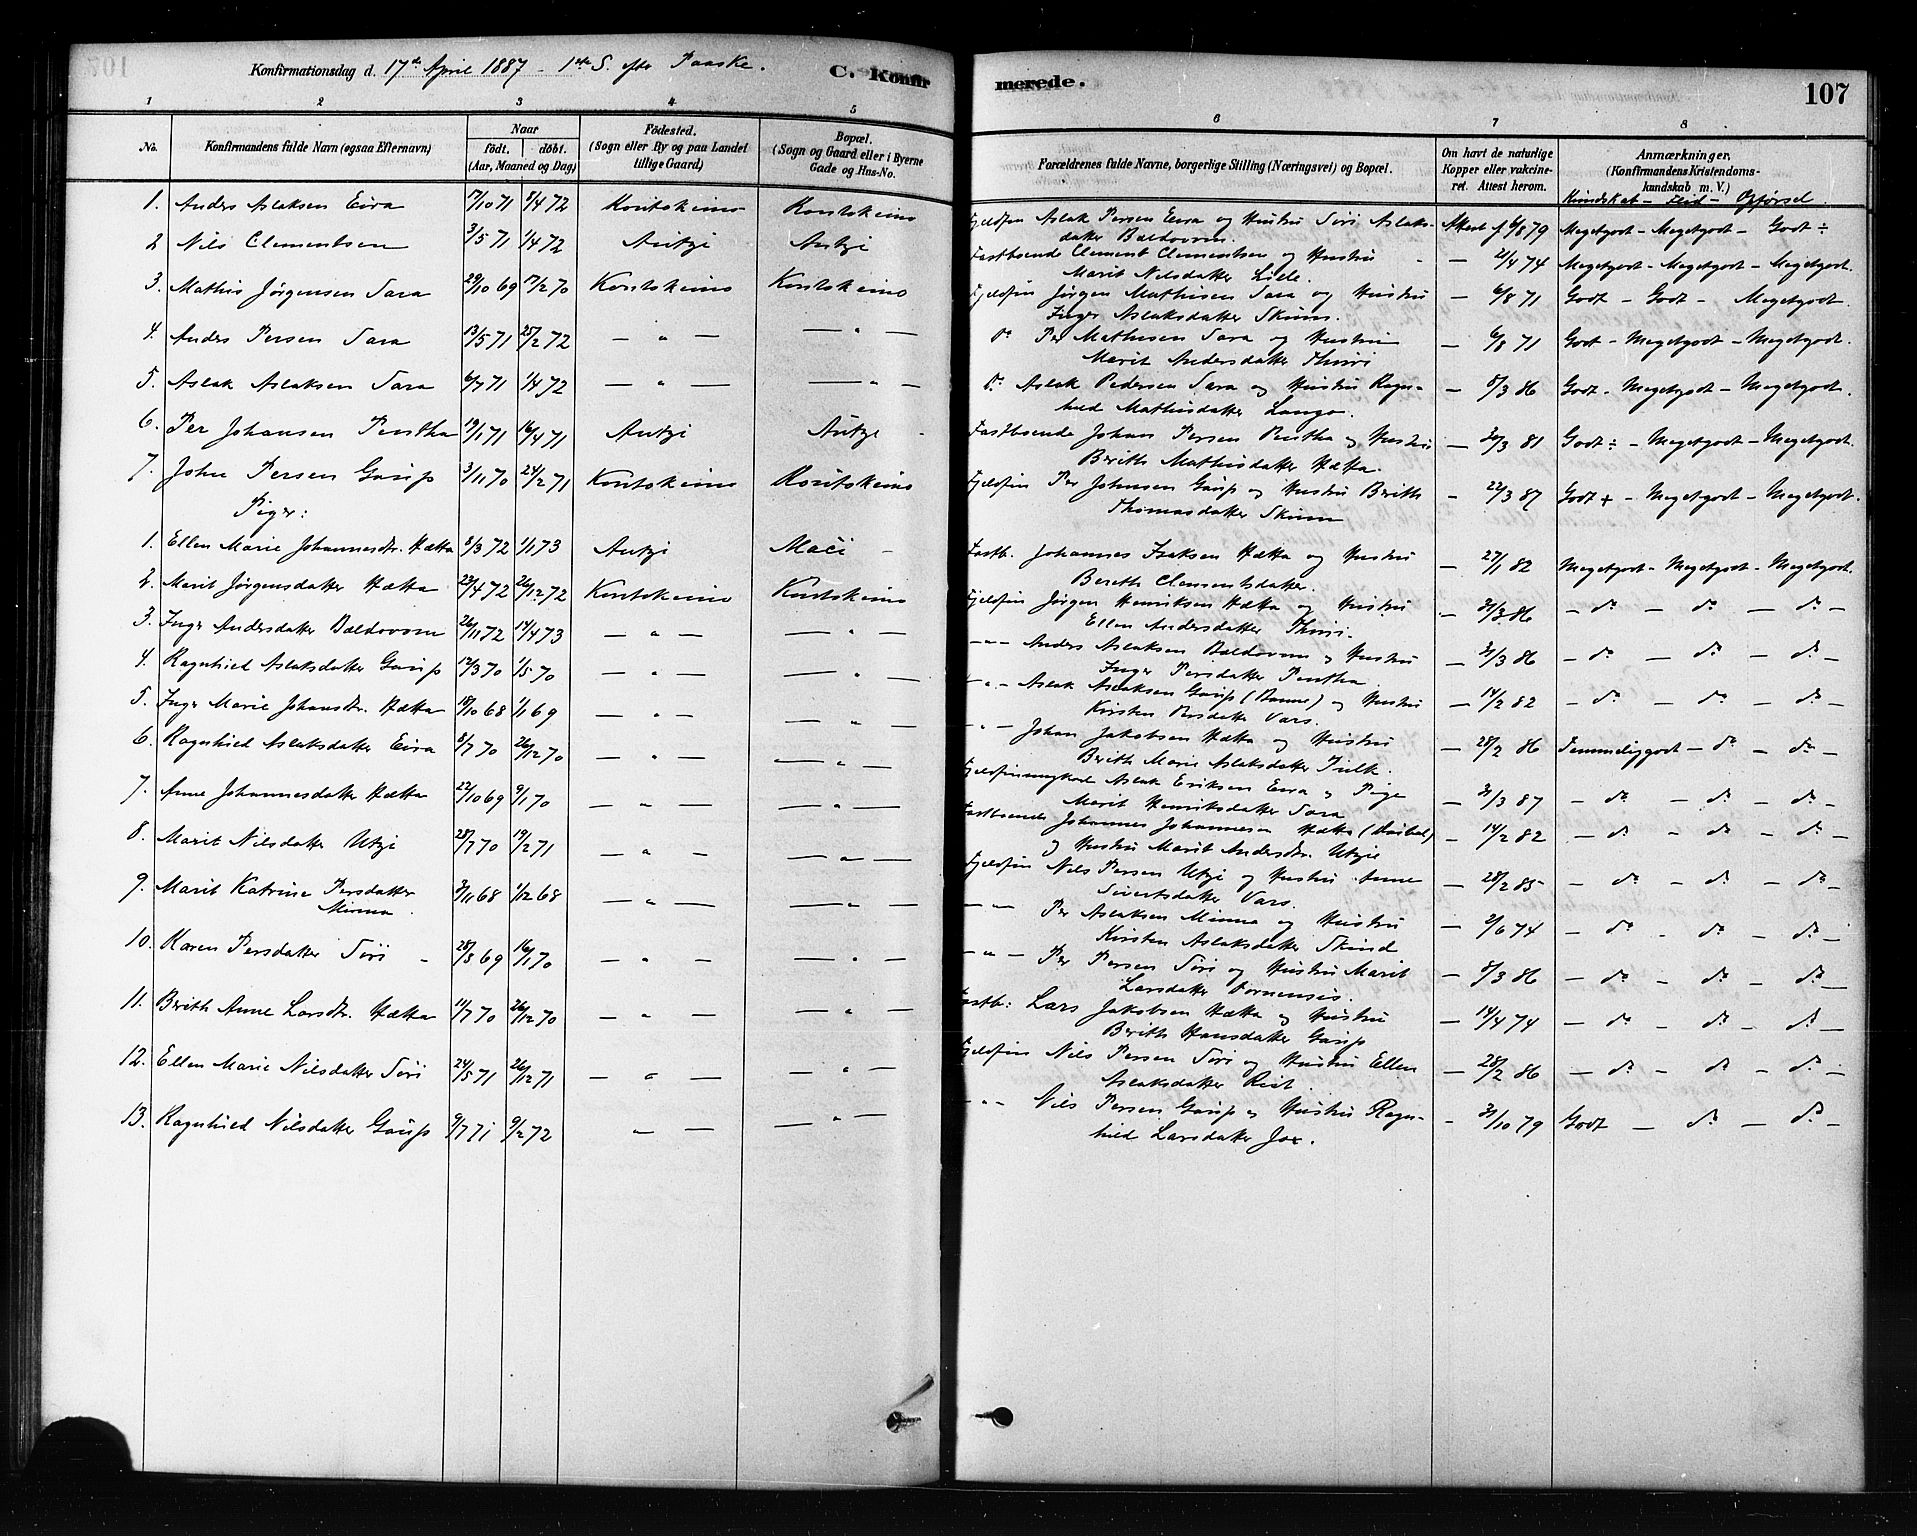 Konfirmationsdag d. 17de April 1887 - 1ste S. efter Paaske.
C. Konfir
merede.
107
1 2 3 4 5
6 7 8
No.
Konfirmandens fulde Navn (ogsaa Efternavn)
Naar
født. døbt.
(Aar, Maaned og Dag)
Fødested.
(Sogn eller By og paa Landet tillige Gaard)
Bopæl.
(Sogn og Gaard eller i Byerne Gade og Hus-No.
Forældrenes fulde Navne, borgerlige Stilling (Næringsvei) og Bopæl.
Om havt de naturlige Kopper eller vakcineret. Attest herom.
Anmærkninger.
(Konfirmandens Kristendomskundskab m. V.)
Kundskab - Flid - Opførsel.
1. Anders Aslaksen Eira 17/10 71 8/4 72 Koutokeino Koutokeino
Fjeldfin Aslak Persen Eira og Hustru Siri Aslaks-
datter Baldovom. Attest f 6/8 79 Megetgodt - Megetgodt - Godt ÷
2 Nils Clementsen 3/5 71 1/4 72 Autzi Autzi
Fastboende Clement Clementsen og Hustru
Marit Nilsdatter Lille. — 2/4 74 Megetgodt - Megetgodt - Megetgodt.
3. Mathis Jørgensen Sara 29/10 69 17/2 70 Koutokeino Koutokeino
Fjeldfin Jørgen Mathisen Sara og Hustru
Inger Aslaksdatter Skum. — 6/8 71 Godt - Godt - Megetgodt.
4. Anders Persen Sara 13/5 71 25/2 72 — " — — " —
do Per Mathesen Sara og Hustru
Marit Andersdatter Thuri — 6/8 71 Godt - Megetgodt - Megetgodt.
5. Aslak Aslaksen Sara 6/7 71 1/4 72 — " — — " —
do Aslak Pedersen Sara og Hustru Ragn-
hild Mathisdatter Lango. — 8/3 86 Godt - Megetgodt - Megetgodt.
6. Per Johansen Pentha 19/1 71 16/4 71 Autzi Autzi
Fastboende Johan Persen Pentha og Hustru
Berith Mathisdatter Hætta. — 30/3 81 Godt ÷ - Megetgodt - Megetgodt.
7. John Persen Gaup 3/11 70 24/2 71 Koutokeino Koutokeino
Fjeldfin Per Johnsen Gaup og Hustru Berith
Thomasdatter Skum — 22/3 87 Godt + - Megetgodt - Megetgodt.
Piger:
1. Ellen Marie Johannesdr. Hætta 8/3 72 1/1 73 Autzi Maci
Fastb. Johannes Isaksen Hætta og Hustru
Bereth Clementsdatter. — 27/1 82 Megetgodt - Megetgodt - Megetgodt.
2. Marit Jørgensdatter Hætta 23/4 72 26/12 72 Koutokeino Koutokeino
Fjeldfin Jørgen Henriksen Hætta og Hustru
Ellen Andersdatter Thuri. — 31/3 86 — do — do — do —
3. Inger Andersdatter Baldovom 26/11 72 14/4 73 — " — — " —
— " — Anders Aslaksen Baldovom og Hustru
Inger Persdatter Pentha. — 31/3 86 — do — do — do —
4. Ragnhild Aslaksdatter Gaup 12/3 70 1/5 70 — " — — " —
— " — Aslak Aslaksen Gaup (Banne) og Hustru
Kirsten Persdatter Vars. — 14/2 82 — do — do — do —
5. Inger Marie Johansdr. Hætta 18/10 68 1/1 69 — " — — " —
— " — Johan Jakobsen Hætta og Hustru
Berith Marie Aslaksdatter Tulk. — 28/2 86 Temmeliggodt — do — do —
6. Ragnhild Aslaksdatter Eira 8/7 70 26/12 70 — " — — " —
Fjeldfinungkarl Aslak Eriksen Eira og Pige
Marit Henriksdatter Sara — 31/3 87 — do — do — do —
7. Anne Johannesdatter Hætta 22/10 69 9/1 70 — " — — " —
Fastboende Johannes Johannesen Hætta
og Hustru Marit Andersdtr. Utzie — 14/2 82 — do — do — do —
8. Marit Nilsdatter Utzi 28/7 70 19/2 71 — " — — " —
Fjeldfin Nils Persen Utzi og Hustru Anne
Sivertsdatter Vars. — 28/2 85 — do — do — do —
9. Marit Katrine Persdatter
Minna. 3/11 68 1/12 68 — " — — " —
— " — Per Aslaksen Minna og Hustru
Kirsten Aslaksdatter Skind — 2/6 74 — do — do — do —
10. Karen Persdatter Siri 28/8 69 16/1 70 — " — — " —
— " — Per Persen Siri og Hustru Marit
Larsdatter Pornensis. — 8/3 86 — do — do — do —
11. Berith Anne Larsdr. Hætta 11/7 70 26/12 70 — " — — " —
Fastb: Lars Jakobsen Hætta og Hustru
Berith Hansdatter Gaup — 14/4 74 — do — do — do
12. Ellen Marie Nilsdatter Siri 24/5 71 26/12 71 — " — — " —
Fjeldfin Nils Persen Siri og Hustru Ellen
Aslaksdatter Rist. — 28/2 86 — do — do — do —
13. Ragnhild Nilsdatter Gaup 9/7 71 9/2 72 — " — — " —
— " — Nils Persen Gaup og Hustru Ragn-
hild Larsdatter Jox. — 31/10 79 Godt — do — do —